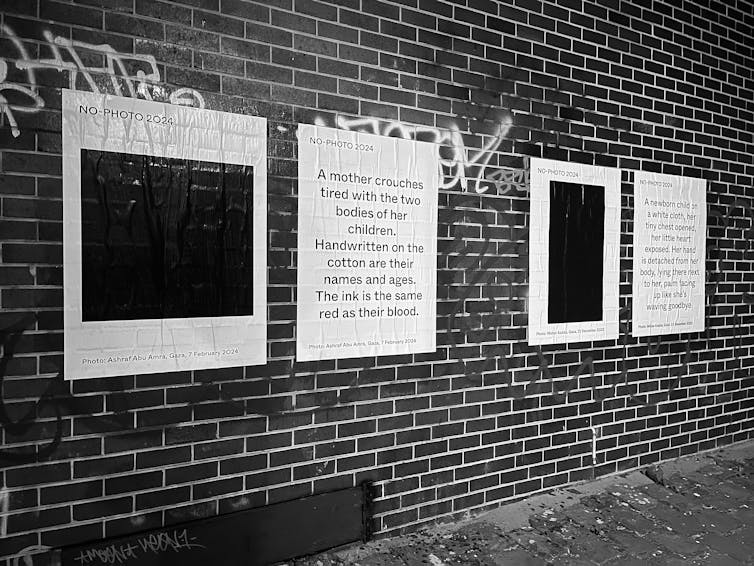 NO-PHOTO 2024
Photo: Ashraf Abu Amra, Gaza, 7 February 2024
NO-PHOTO 2024
A mother crouches
tired with the two
bodies of her
children.
Handwritten on the
cotton are their
names and ages.
The ink is the same
red as their blood.
Photo: Ashraf Abu Amra, Gaza, 7 February 2024
NO-PHOTO 2024
Gaza, 21 December 2023
NO-PHOTO 2024
A newborn child on
a white cloth, her
tiny chest opened,
her little heart
exposed. Her hand
is detached from her
body, lying there next
to her, palm facing
up like she's
waving goodbye.